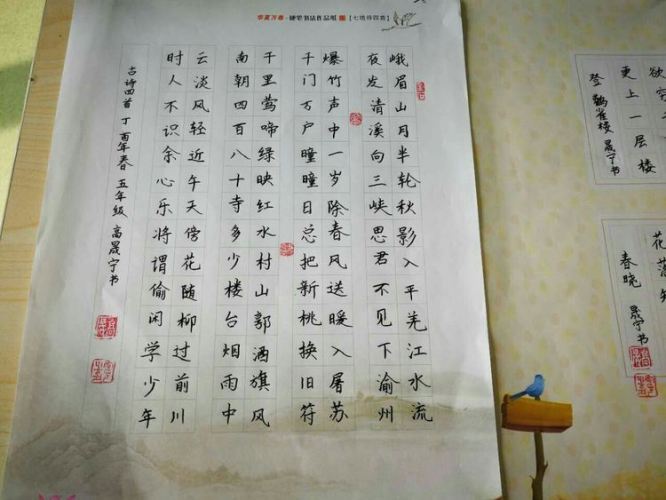 华夏万卷·硬笔书法作品纸 【七绝诗四首】
峨眉山月半轮秋影入平羌江水流
夜发清溪向三峡思君不见下渝州
爆竹声中一岁除春风送暖入屠苏
千门万户曈曈日总把新桃换旧符
千里莺啼绿映红水村山郭酒旗风
南朝四百八十寺多少楼台烟雨中
云淡风轻近午天傍花随柳过前川
时人不识余心乐将谓偷闲学少年
古诗四首 丁酉年春 五年级 高晟宁书
欲穷
更上一层楼
登鹳雀楼 晟宁书
花落知
春晓 晟宁书